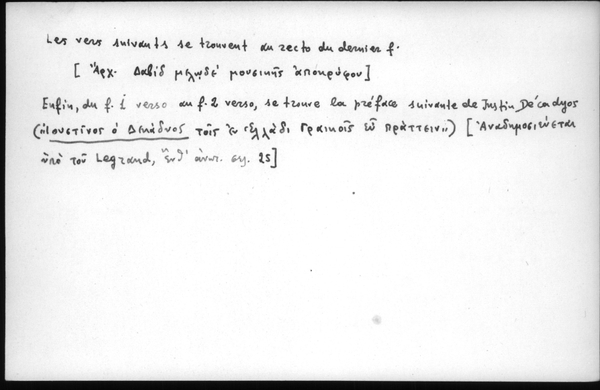 Les vers suivants se trouvent au recto du dernier f.
[ Ἀρχ. Δαβὶδ μελῳδέ μουσικῆς ἀποκρύφου]
Enfin, du f. 1 verso au f. 2 verso, se trouve la préface suivante de Justin Décadyos
(«Ἰουστῖνος ὁ Δεκάδυος τοῖς ἐν Ἑλλάδι Γραικοῖς εὖ πράττειν») [Ἀναδημοσιεύεται
ὑπὸ τοῦ Legrand, ἔνθ' ἀνωτ. σελ. 25]